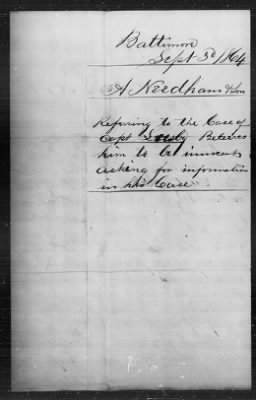 Baltimore
Sept 3d 1864
A Needham & Son
Refering to the Case of
Capt Beleves
him to be innocent
asking for information
in his Case